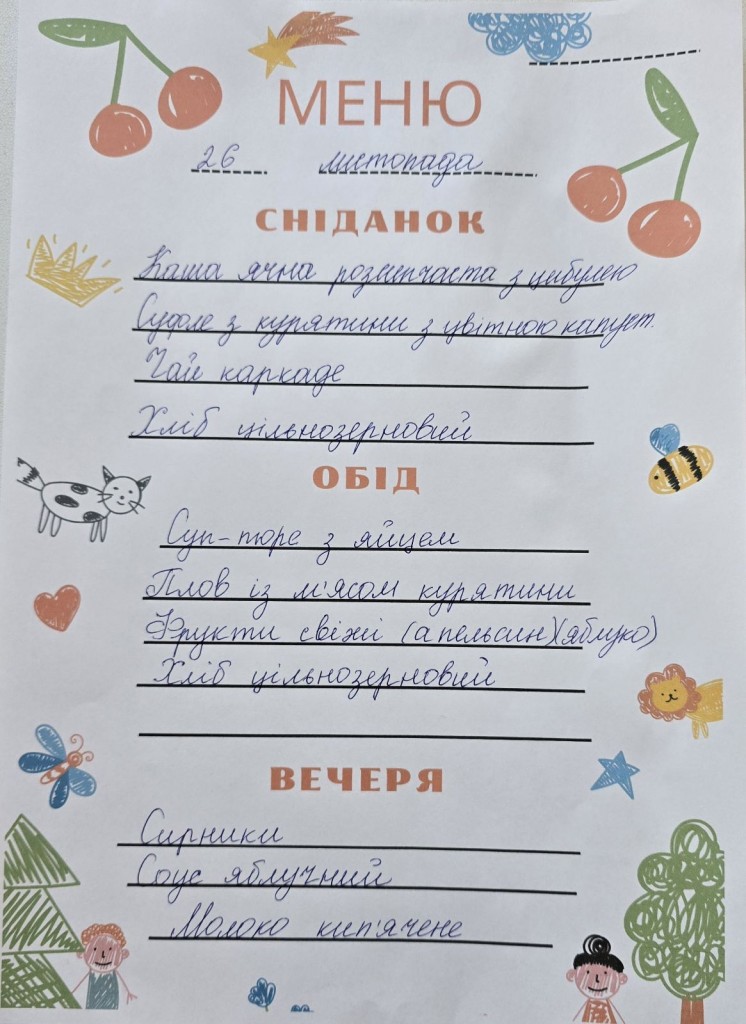 МЕНЮ
26 листопада
СНІДАНОК
Каша ячна розсипчаста з цибулею
Суфле з курятини з цвітною капуст.
Чай каркаде
Хліб цільнозерновий
ОБІД
Суп-пюре з яйцем
Плов із м'ясом курятини
Фрукти свіжі (апельсин)(яблуко)
Хліб цільнозерновий
ВЕЧЕРЯ
Сирники
Соус яблучний
Молоко кип'ячене